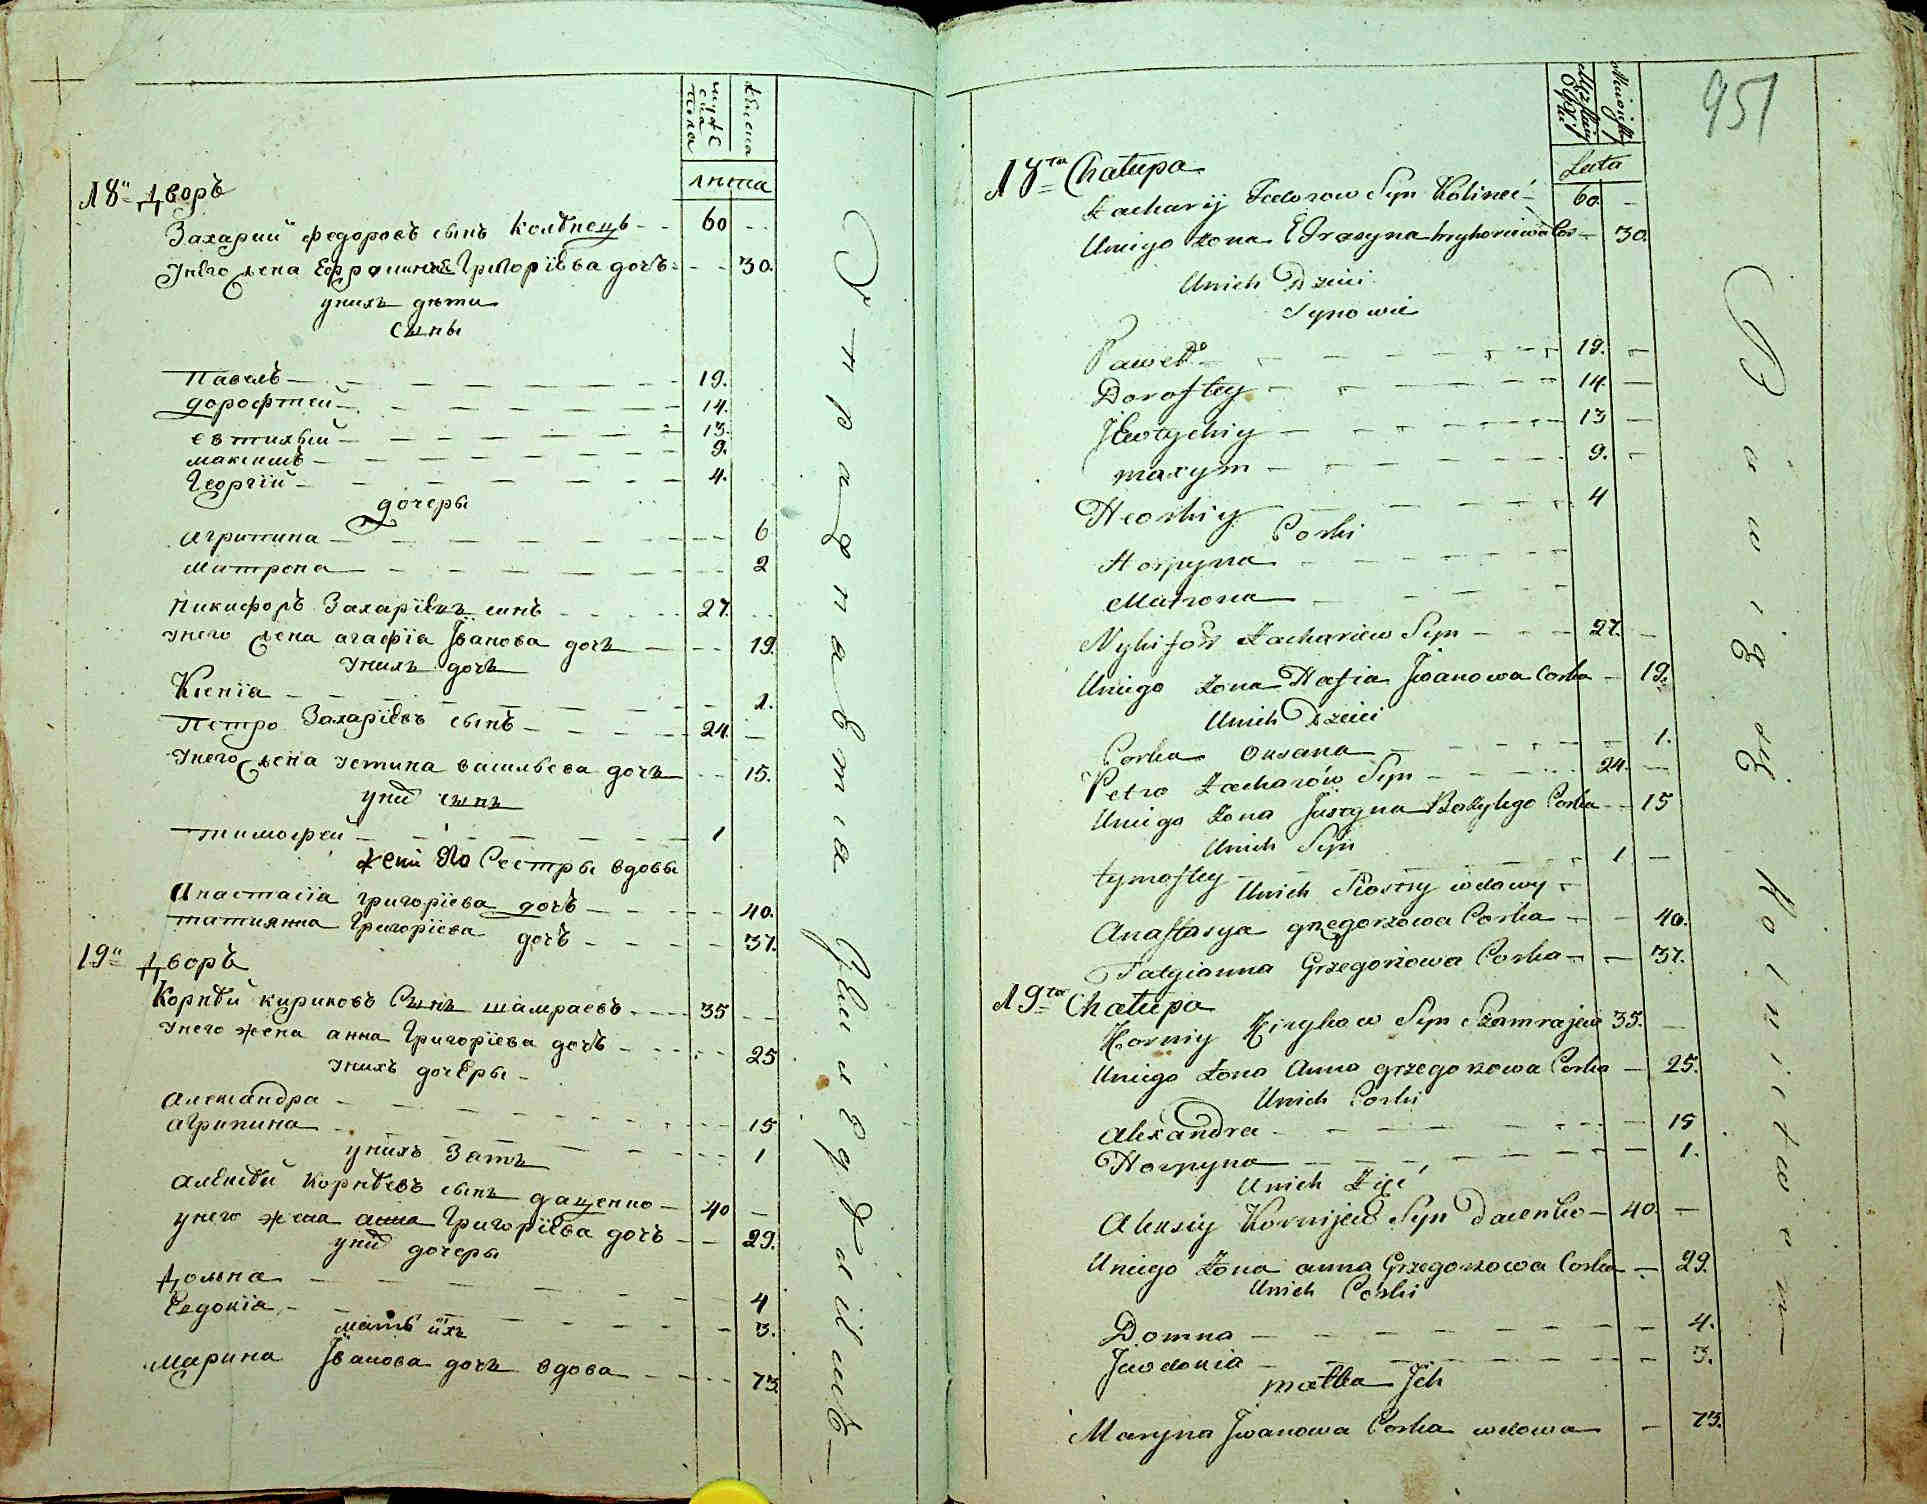 мужеска пола
женска
лѣта
18й дворъ
Захарий федоровъ сынъ Колѣнецъ 60
у него жена Ефросинія Григоріева дочь 30.
у нихъ дѣти
сыны
Павелъ 19.
дорофтей 14.
евтихый 13.
максимъ 9.
Георгій 4.
дочеры
агрипина 6
Матрона 2
Никифоръ Захаріевъ синъ 27.
у него жена агафіа Іванова дочъ 19.
у нихъ дочъ
Ксеніа 1.
Петро Захаріевъ сынъ 24.
у него жена устина васильева дочъ 15.
у них сынъ
тимофей 1
Сестры вдовы
Анастасіа григоріева дочъ 40.
татиянна Григоріева дочъ 37.
19й дворъ
Корнѣй кириковъ Сынъ шамраевъ 35
у него жена анна Григоріева дочъ 25
у нихъ дочеры
Александра 15
агрипина 1
у нихъ Затъ
Алексѣй Корнѣевъ сынъ даценко 40
у него жена анна Григоріева дочъ 29.
у них дочеры
Домна 4
Евдокіа 3.
мать ихъ
Марина Іванова дочъ вдова 73.
951
Męzkiey
Płci
Lata
18ta Chałupa
Zacharij Fedorow Syn Koliniec 60
U niego żona Efrosyna hryhoriewa Cor 30.
U nich Dzieci
Synowie
Paweł 19.
Doroftey 14.
Jewtychiy 13
maxym 9.
Heorhiy 4
Corki
Horpyna
Matrona
Nykifor Zachariew Syn 27.
U niego żona Hafia Jwanowa Corka 19.
U nich Dzieci
Corka Oxana 1.
Petro Zacharów Syn 24.
U niego żona Justyna Bazylego Corka 15
U nich Syn
tymoftey 1
U nich Siostry wdowy
Anastasya grzegorzowa Corka 40.
Tatyianna Grzegorzowa Corka 37.
19ta Chałupa
Korniy Kirykow Syn Szamrajew 35.
U niego żona Anna grzegorzowa Corka 25.
U nich Corki
Alexandra 15
Horpyna 1.
U nich Zięć
Alexiy Kornijew Syn Dacenko 40.
U niego żona anna Grzegorzowa Corka 29.
U nich Corki
Domna 4.
Jewdokia 3.
matka Jch
Maryna Jwanowa Corka wdowa 73.